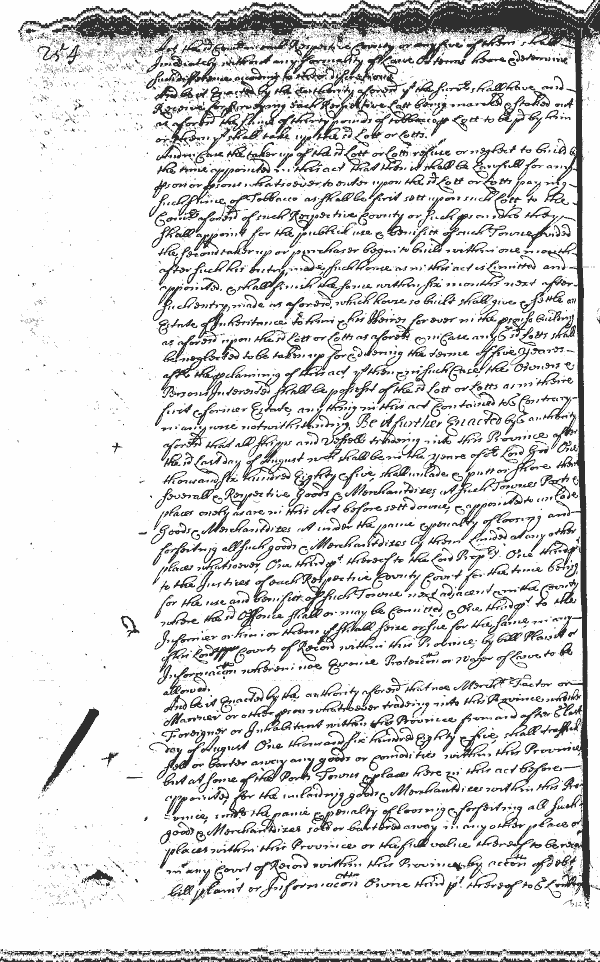 254
Act the sd Comrs in each Respective County or any five of them shall
Imediately without any formality of Lawe Heare & determine
such difference according to their discretions
And be it Enacted by the Authority aforesd yt the Surveyr shall have and
Receive for surveying each Respective Lott being marked & staked out
as aforesd the sume of thirty pounds of tobbaccoe p Lott to be pd by him
or them yt shall take up the sd Lott or Lotts.
And in Case the taker up of the sd Lott or Lotts refuse or neglect to build by
the time appointed in this act that then it shall be Lawfull for any
pson or psons whatsoever to enter upon the sd Lott or Lotts paying
such sume of Tobacco as shall be first sett upon such Lott to the
Comrs aforesd of such Respective County or such pson as they
shall appoint for the publick use & benifitt of such Towne provided
the second taker up or purchaser begin to build within one month
after such his entry made, such house as in this act is Limitted and
appointed, & shall finish the same within six months next after
such entry made as aforesd, which house so built shall give & settle an
Estate of Inheritance to him & his Heires forever in the
as aforesd upon the sd Lott or Lotts as aforesd & in Case any sd Lotts shall
be neglected to be taken up for & dureing the terme of five Yeares
after the publishing of this act yt then in such Case the Owners &
Persons Interested shall be possest of the sd Lott or Lotts as in there
first & former Estate, any thing in this act Contained to ye Contrary
in any wise notwithstanding. Be it further Enacted by ye authority
aforesd that all Shipps and Vessells tradeing into this Province after
the sd Last day of August wch shall be in the yeare of or Lord God One
thousand six hundred Eighty & five, shall unlade & putt on shore their
severall & Respective Goods & Merchandizes att such Townes Ports &
places onely as are in this Act before sett downe, & appointed to unlade
Goods & Merchandizes att under the paine & penalty of loosing and
forfeiting all such goods & Merchandizes by them Landed at any other
places whatsoever, One third pt thereof to the Lord Propry One third pt
to the Justices of each Respective County Court for the time being
for the use and benifitt of such Towne next adjacent in the County
where the sd Offence shall or may be Comitted & One third pt to the
Informer or him or them yt shall seize or sue for the same in any
of his Lordpps Courts of Record within this Province, by bill Plaint or
Informacon wherein noe Essoine Protection or Wager of Lawe to be
allowed.
And be it Enacted by the authority aforesd that noe Mercht Factor or
Marriner or other pson whatsoever tradeing into this Province whether
Foreigner or Inhabitant within this Province from and after ye Last
day of August One thousand six hundred Eighty & five, shall traffick
sell or barter away any goods or comodities within this Province
but at some of the Ports Towns & places here in this act before
appointed for the unlading goods & Merchandizes within this Pro
-vince, under the paine & penalty of loosing & forfeiting all such
goods & Merchandizes sold or bartered away in any other place or
places within this Province or the full value thereof to be
in any Court of Record within this Province by accon of debt
bill plaint or Informacon One third pt thereof to ye Lord